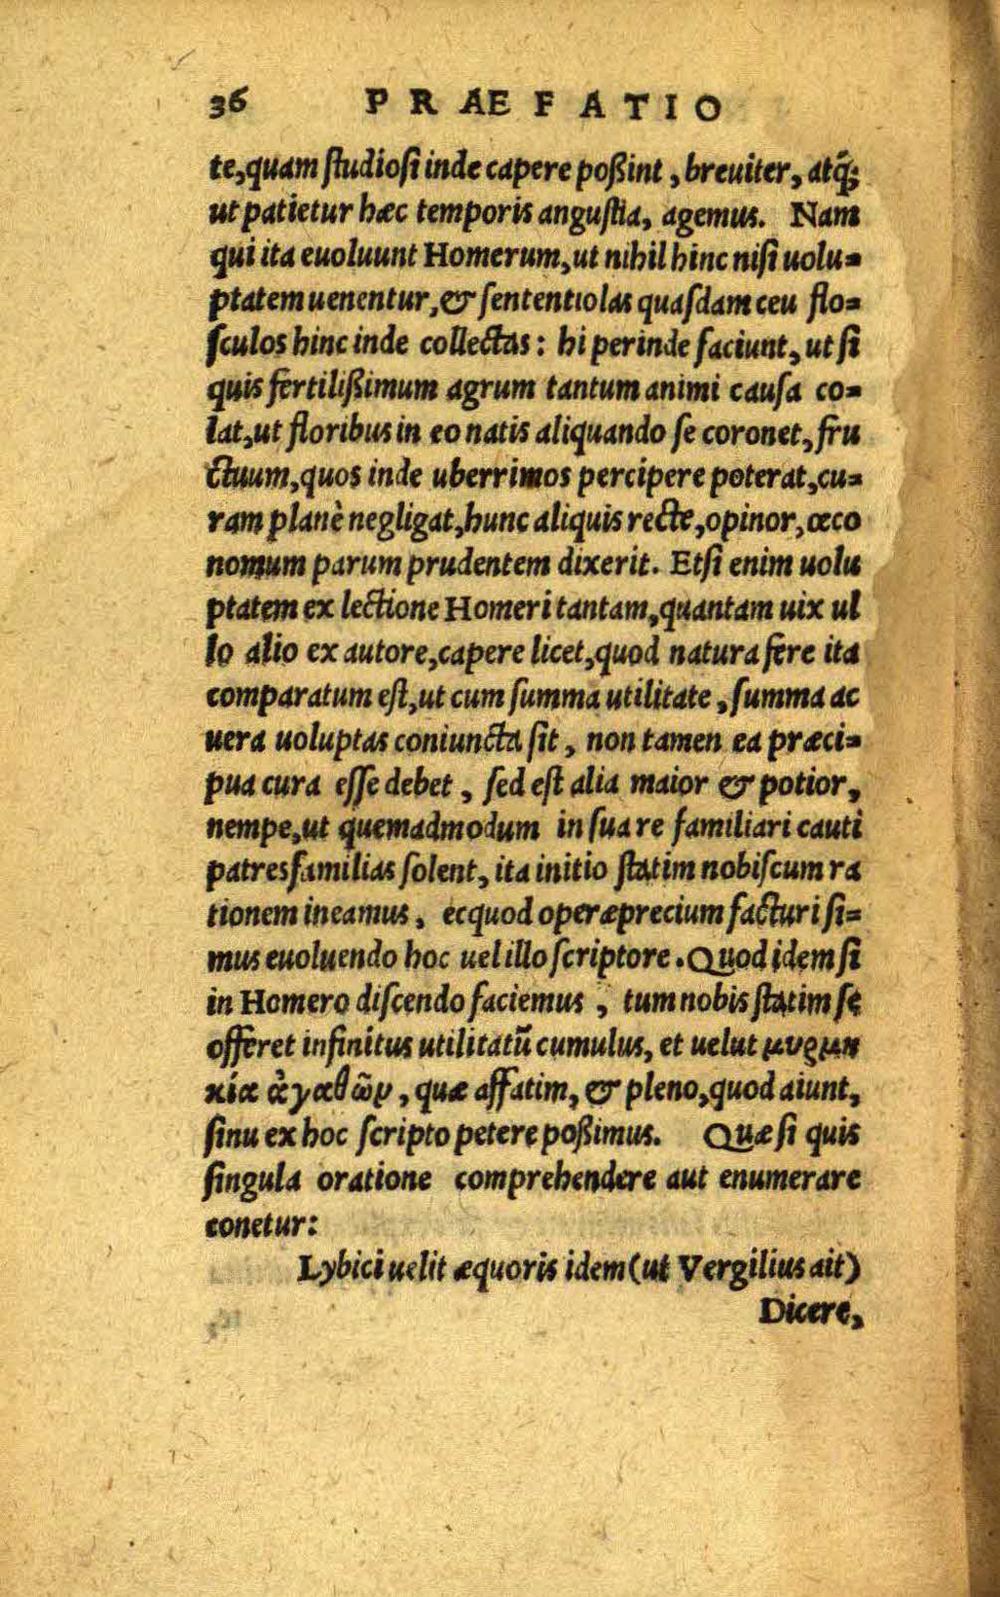 36 PRAEFATIO
te,quam ſtudioſi inde capere poßint , breuiter, atq́;
ut patietur hæc temporis anguſtia, agemus. Nam
qui ita euoluunt Homerum,ut nihil hinc niſi uolu=
ptatem uenentur,& ſententiolas quaſdam ceu flo=
ſculos hinc inde collectas : hi perinde faciunt, ut ſi
quis fertilißimum agrum tantum animi cauſa co=
lat,ut floribus in eo natis aliquando ſe coronet, fru
ctuum,quos inde uberrimos percipere poterat,cu=
ram planè negligat,hunc aliquis recte,opinor,œco
nomum parum prudentem dixerit. Etſi enim uolu
ptatem ex lectione Homeri tantam,quantam uix ul
lo alio ex autore,capere licet,quod natura fere ita
comparatum eſt,ut cum ſumma utilitate , ſumma ac
uera uoluptas coniuncta ſit , non tamen ea præci=
pua cura eſſe debet , ſed eſt alia maior & potior,
nempe,ut quemadmodum in ſua re familiari cauti
patresfamilias ſolent, ita initio ſtatim nobiſcum ra
tionem ineamus, ecquod operæprecium facturi ſi=
mus euoluendo hoc uel illo ſcriptore . Quod idem ſi
in Homero diſcendo faciemus , tum nobis ſtatim ſe
offeret infinitus utilitatũ cumulus, et uelut μυρμη
κία ἀγαθῶν, quæ affatim, & pleno,quod aiunt,
ſinu ex hoc ſcripto petere poßimus. Quæ ſi quis
ſingula oratione comprehendere aut enumerare
conetur:
Lybici uelit æquoris idem (ut Vergilius ait)
Dicere,